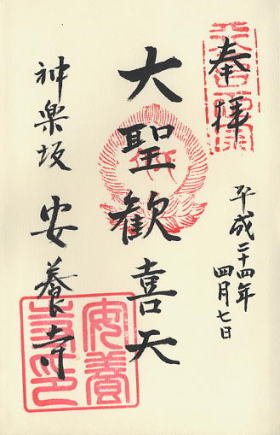 奉拝
平成二十四年
四月七日
大聖歓喜天
神楽坂
安養寺
安養
寺印